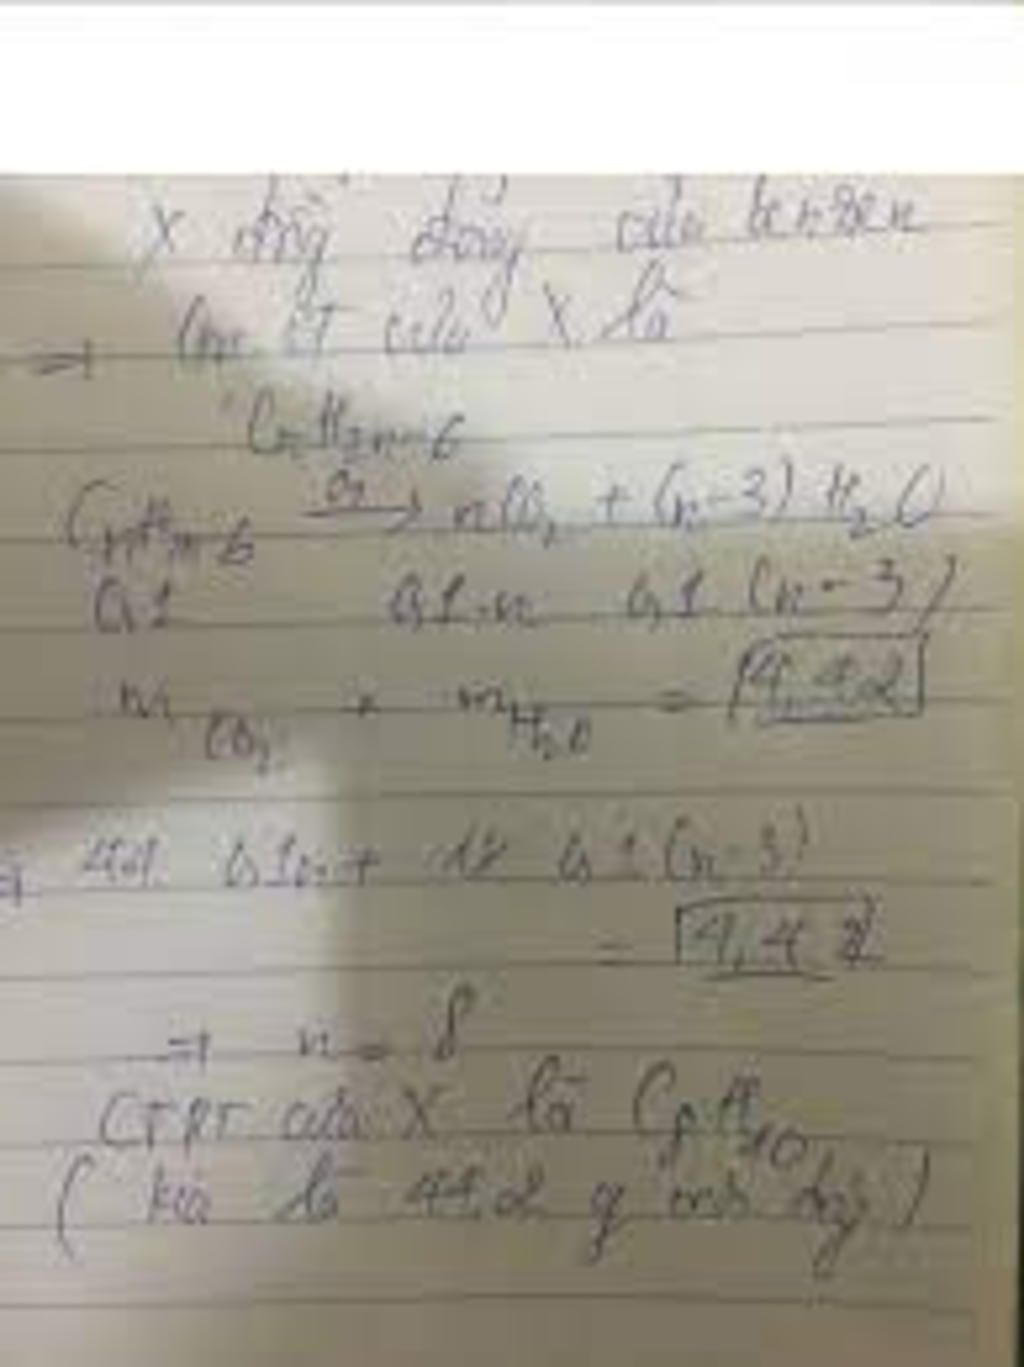 X đồng đẳng của benzen
=> CTPT của X là
CnH2n-6
CnH2n-6 O2 → nCO2 + (n-3) H2O
0,1 0,1.n 0,1 (n-3)
mCO2 + mH2O = 4,42
44. 0,1n + 18 0,1(n-3)
= 4,42
=> n = 8
CTPT của X là C8H10
( là 44,2 g mới đúng )